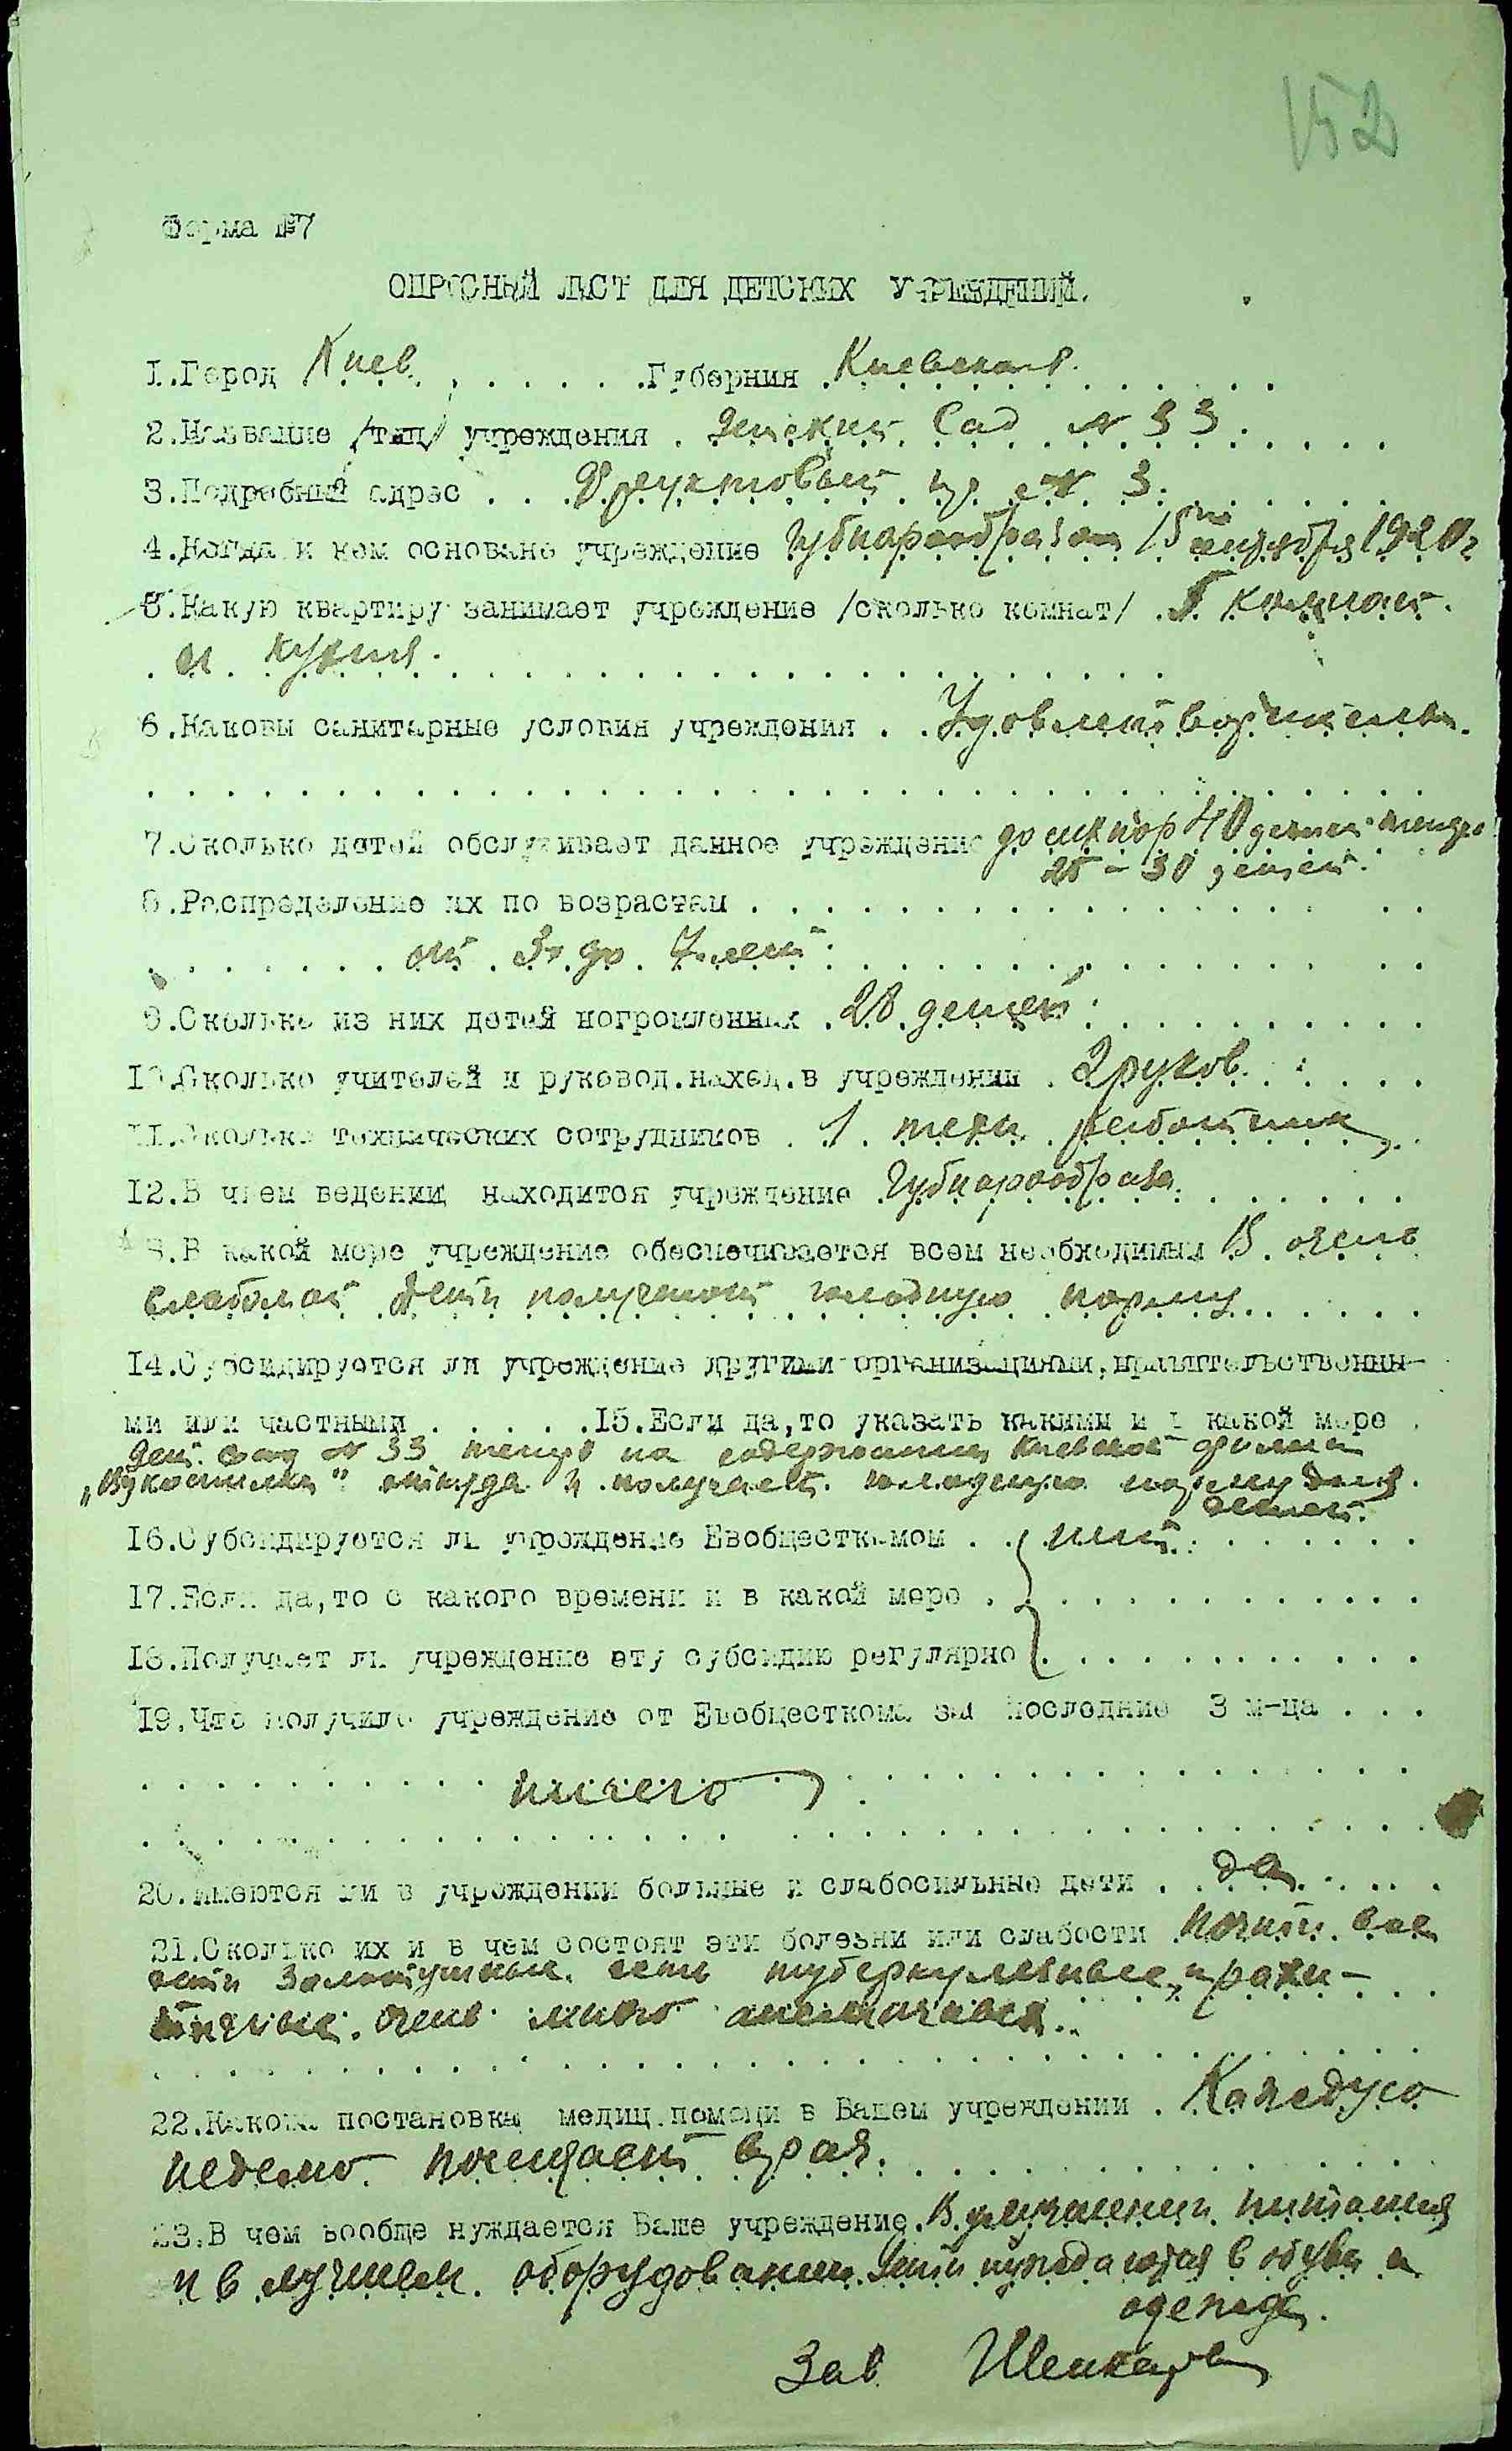 152
Форма №7
ОПРОСНЫЙ ЛИСТ ДЛЯ ДЕТСКИХ УЧРЕЖДЕНИЙ.
1.Город Киев. . . . . . .Губерния Киевская. . . . . . .
2.Название /тип/ учреждения . Детский Сад № 33. . . . .
3.Подробный адрес . . Фруктовый № 3. . . . . .
4.Когда и кем основано учреждение Губнаробразом 15го 1920г
5.Какую квартиру занимает учреждение /сколько комнат/ . комнат.
. и кухня. . . . . . . . . .
6.Каковы санитарные условия учреждения . . Удовлетворительн.
7.Сколько детей обслуживает данное учреждение до сих пор 40 детей теперь
25 – 30 детей.
8.Распределение их по возрастам . . . . . . . . . .
. . . . . от 3х до 7 лет. . . . . . . .
9.Сколько из них детей погромленных . 28 детей. . . . . .
10.Сколько учителей и руковод.наход.в учреждении . 2 руков. . . . .
11.Сколько технических сотрудников . 1 техн. работник . .
12.В чьем ведении находится учреждение Губнаробраза. . . . . .
13.В какой мере учреждение обеспечивается всем необходимым В очень
слабой Дети получают голодную норму. . . . .
14.Субсидируется ли учреждение другими организациями,правительственны-
ми или частными. . . . . .15.Если да,то указать какими и в какой мере .
Дет. сад № 33 теперь на содержании Киевской филии
„Вукопилки" откуда и получает голодную норму для
детей.
16.Субсидируется ли учреждение Евобщесткомом . . нет. . . . . .
17.Если да,то с какого времени и в какой мере . . . . . . . .
18.Получает ли учреждение эту субсидию регулярно . . . . . . . .
19.Что получило учреждение от Евобщесткома за последние 3 м-ца . . .
. . . . . . ничего . . . . . .
20.Имеются ли в учреждении больные и слабосильные дети . . да. . . . .
21.Сколько их и в чем состоят эти болезни или слабости почти все
дети золотушные. есть туберкулезные, и рахи-
тичные. Очень много анемичных. .
22.Какова постановка медиц.помощи в Вашем учреждении . Каждую
неделю посещает врач. . . . . . .
23.В чем вообще нуждается Ваше учреждение. В улучшении питания
и в лучшем оборудовании. Дети нуждаются в обуви и
одежде.
Зав.